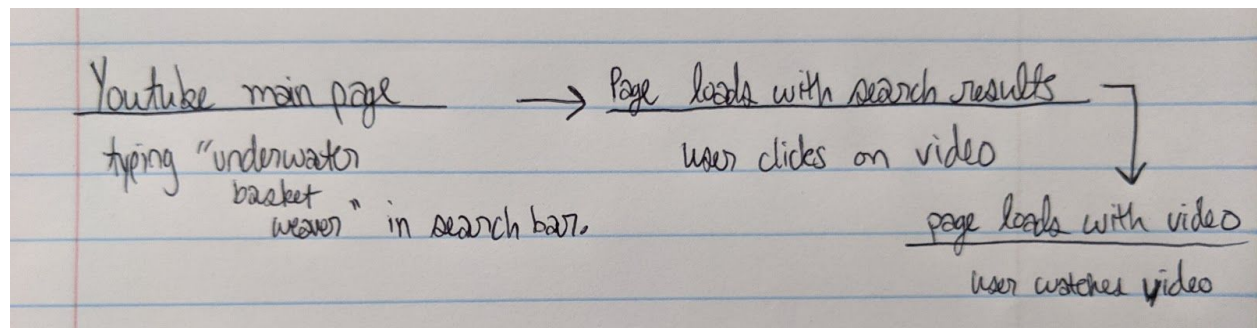 Youtube main page → Page loads with search results
typing "underwater
basket
weaver" in search bar.
user clicks on video
page loads with video
user watches video